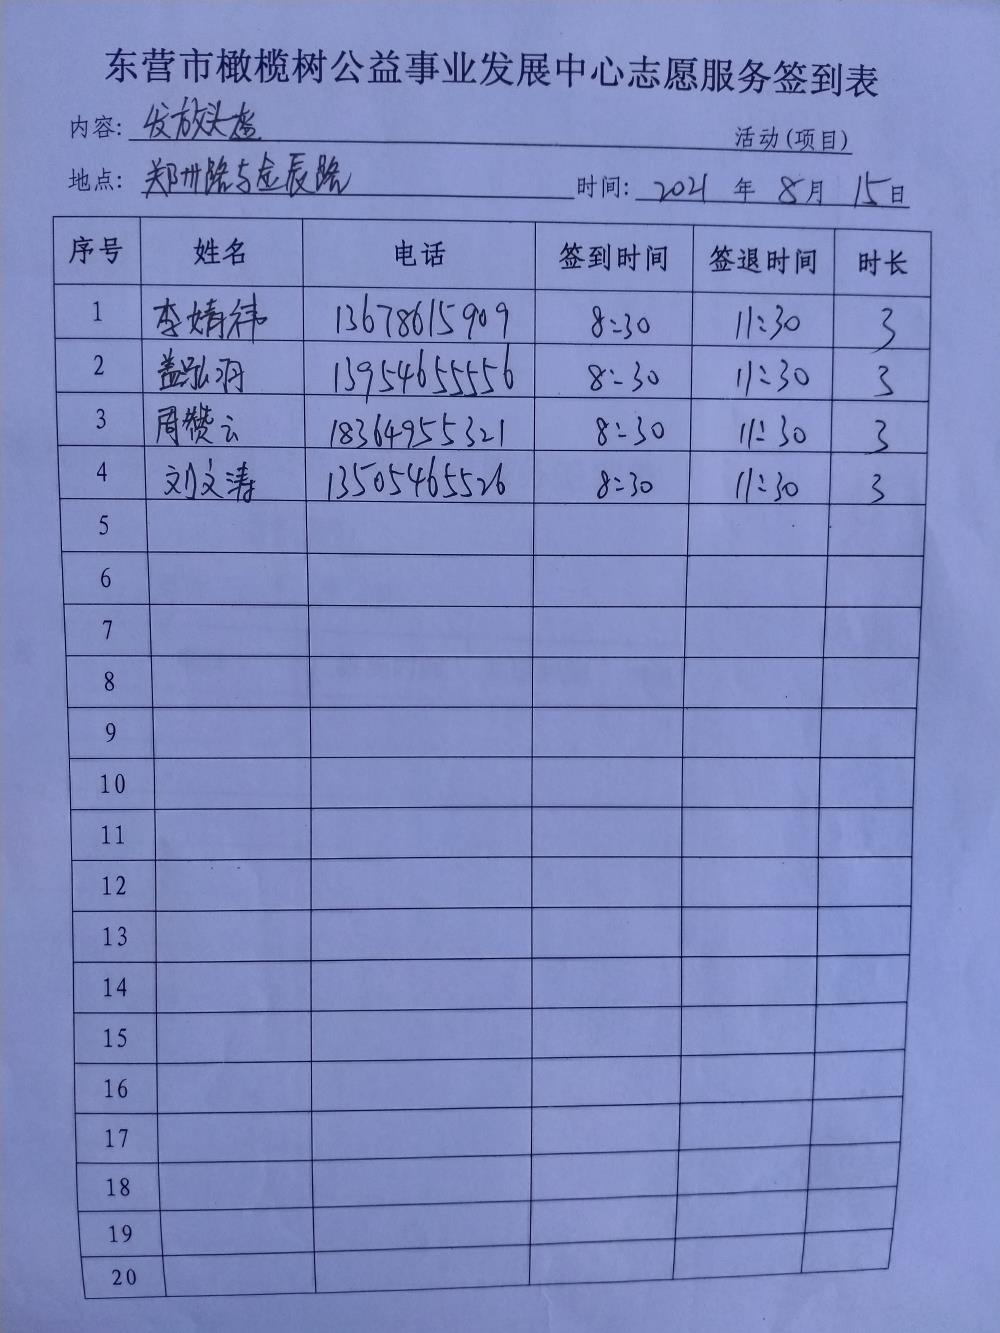 东营市橄榄树公益事业发展中心志愿服务签到表
内容: 发放头盔 活动(项目)
地点: 郑州路与金辰路 时间: 2021 年 8 月 15 日
序号 姓名 电话 签到时间 签退时间 时长
1 李婧祎 13678615909 8:30 11:30 3
2 盖泓羽 13954655556 8:30 11:30 3
3 周赞云 18364955321 8:30 11:30 3
4 刘文涛 13505465526 8:30 11:30 3
5
6
7
8
9
10
11
12
13
14
15
16
17
18
19
20